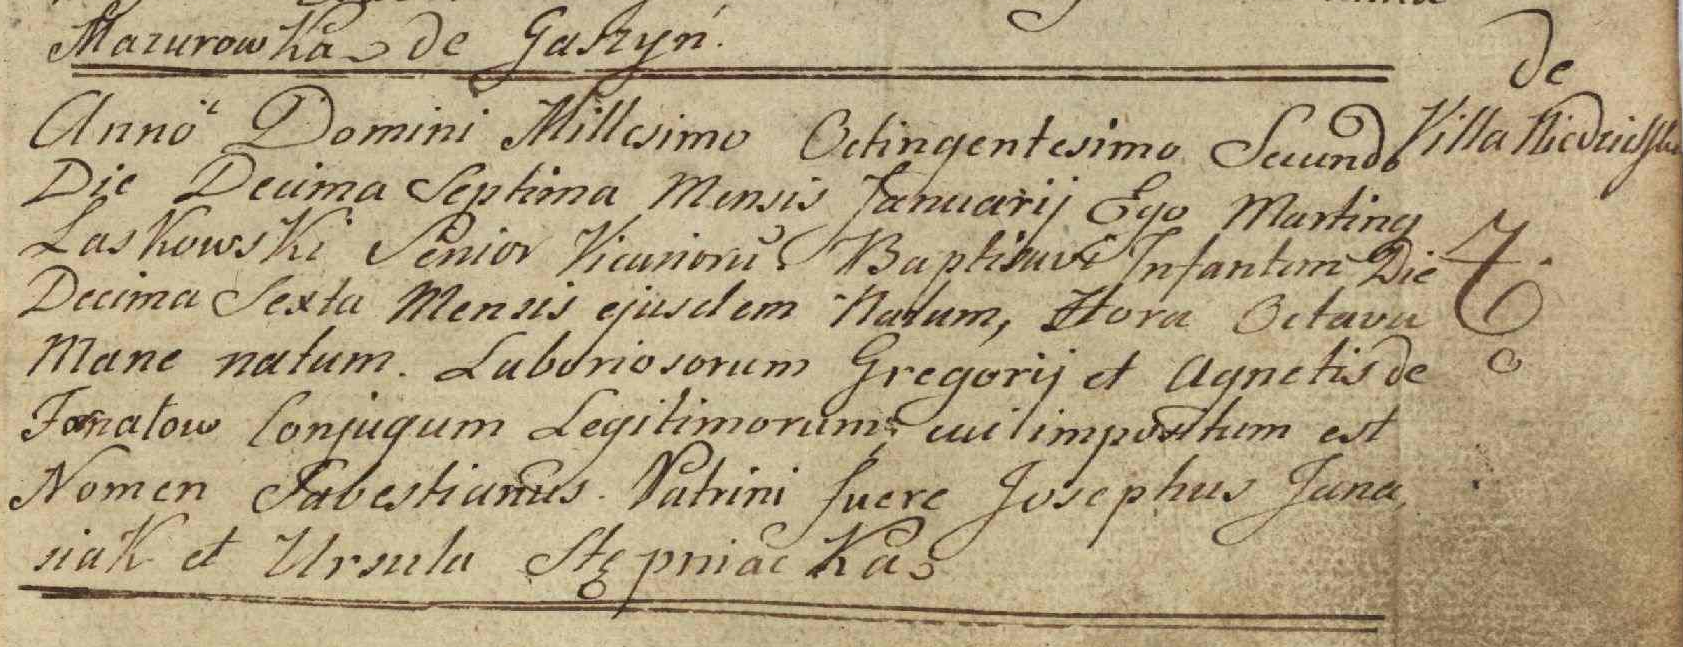 Mazurowka de Gaszyń.
de
Villa
Anno Domini Millesimo Octingentesimo Secundo
Die Decima Septima Mensis Januarij Ego Martinq
Laskowski Senior Vicarioru Baptisavi Infantem Die
Decima Sexta Mensis ejusdem Natum, Hora Octava
Mane natum. Laboriosorum Gregorij et Agnetis de
Conjugum Legitimorum, cui impositum est
Nomen Sabestianus. Patrini fuere Josephus Jana
siak et Ursula Stępniacka